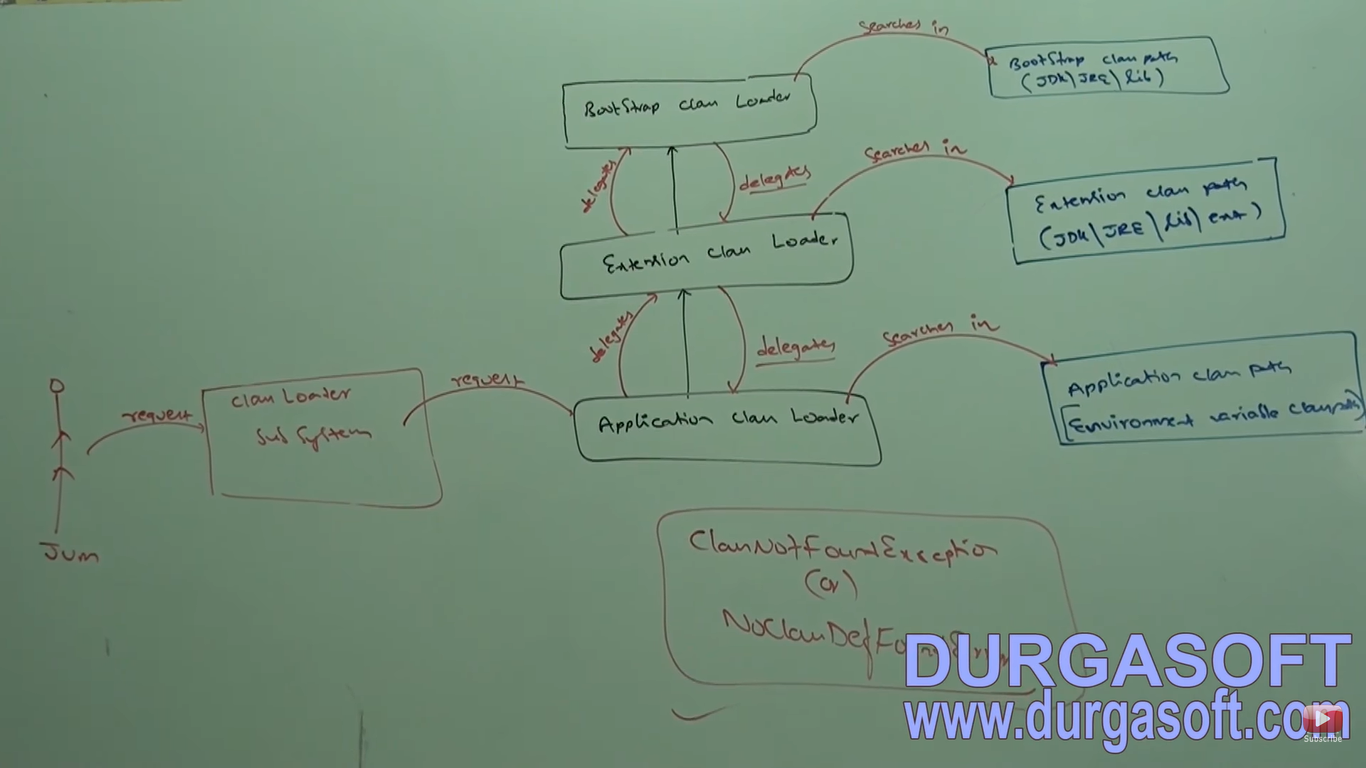 searches in
BootStrap class path
(JDK\JRE\lib)
BootStrap class Loader
delegates
delegates
searches in
Extension class path
(JDK\JRE\lib\ext)
Extension class Loader
delegates
delegates
searches in
Application class path
[Environment variable classpath]
request
request
class Loader
Sub System
Application class Loader
JVM
ClassNotFoundException
(or)
NoClassDefFoundError
DURGASOFT
www.durgasoft.com
Subscribe